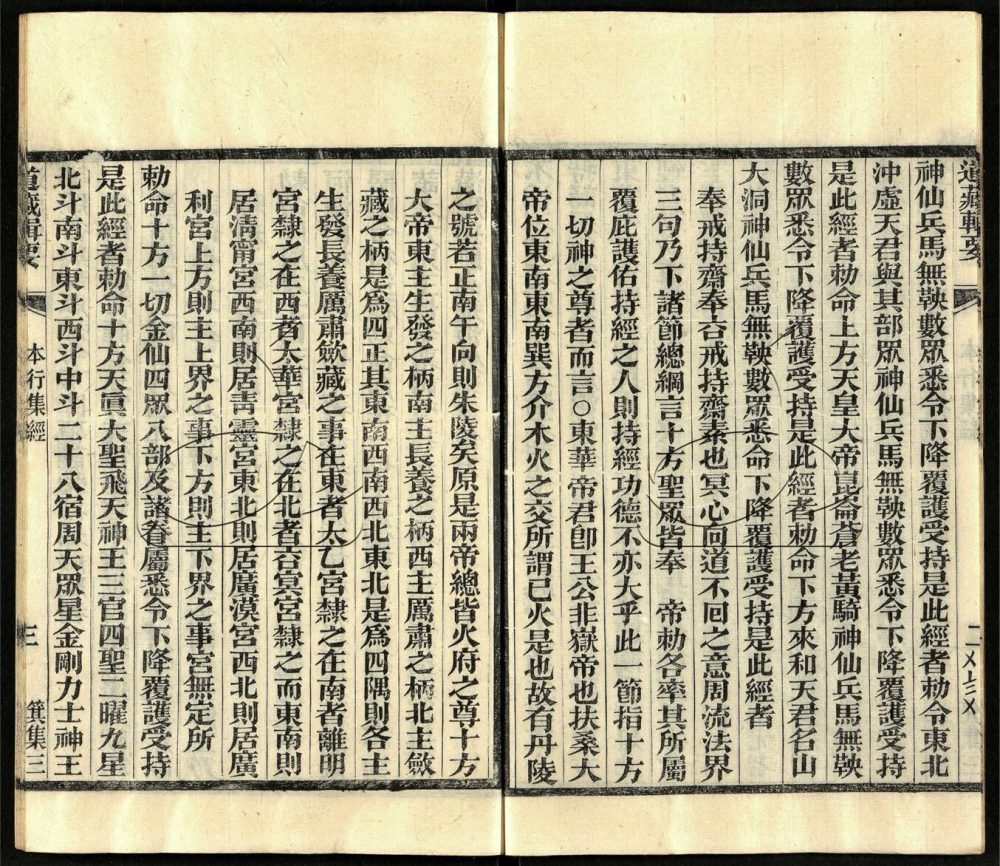 道藏輯要
神仙兵馬無鞅數眾悉令下降覆護受持是此經者勅令東北
沖虛天君與其部眾神仙兵馬無鞅數眾悉令下降覆護受持
是此經者勅命上方天皇大帝崑崙蒼老黃騎神仙兵馬無鞅
數眾悉令下降覆護受持是此經者勅命下方來和天君名山
大洞神仙兵馬無鞅數眾悉命下降覆護受持是此經者
奉戒持齋奉合戒持齋素也冥心回道不回之意周流法界
三句乃下諸節總綱言十方聖眾皆奉 帝勅各率其所屬
覆庇護佑持經之人則持經功德不亦大乎此一節指十方
一切神之尊者而言○東華帝君卽王公非嶽帝也扶桑大
帝位東南東南巽方介木火之交所謂巳火是也故有丹陵
之號若正南午向則朱陵矣原是兩帝總皆火府之尊十方
大帝東主生發之柄南主長養之柄西主厲肅之柄北主斂
藏之柄是為四正其東南西南西北東北是為四隅則各主
生發長養厲肅斂藏之事在東者太乙宮隸之在南者離明
宮隸之在西者太華宮隸之在北者杳冥宮隸之而東南則
居淸甯宮西南則居靑靈宮東北則居廣漠宮西北則居廣
利宮上方則主上界之事下方則主下界之事宮無定所
勅命十方一切金仙四眾八部及諸眷屬悉令下降覆護受持
是此經者勅命十方天眞大聖飛天神王三官四聖二曜九星
北斗南斗東斗西斗中斗二十八宿周天眾星金剛力士神王
道藏輯要 本行集經 三 箕集三